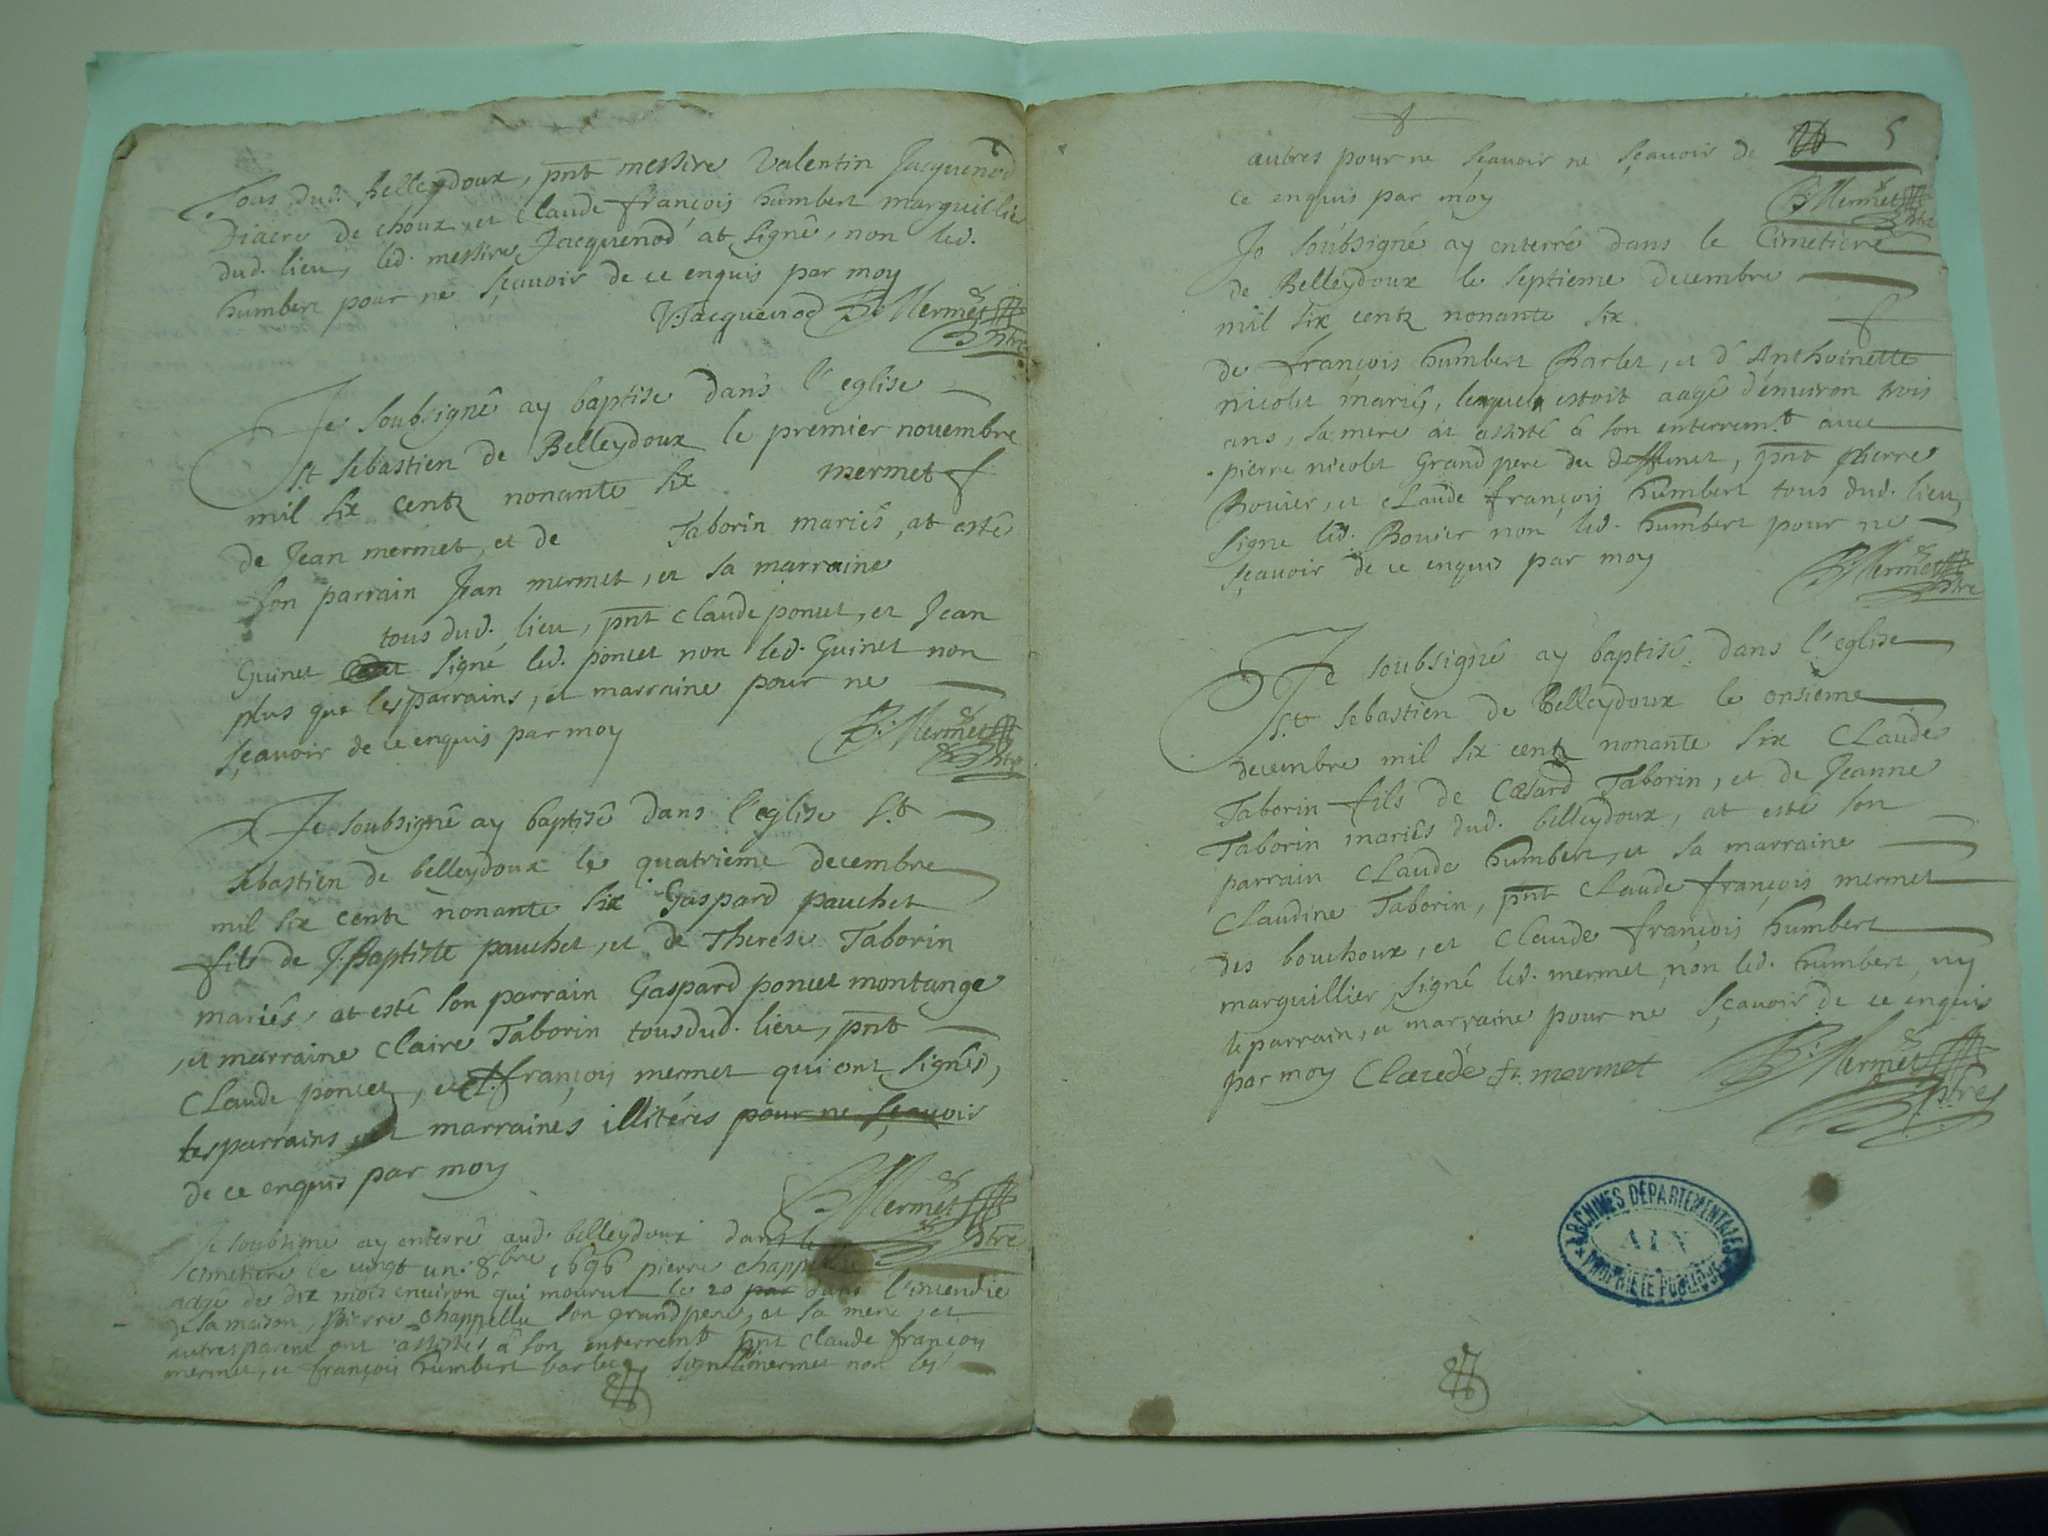 Tous dud. Belleydoux, pnt messire Valentin Jacquenod
Diacre de choux, et Claude françois humbert marguillie
dud. lieu, led. messire Jacquenod at signé, non led.
humbert pour ne sçavoir de ce enquis par moy
V. Jacquenod B: Mermet
ptre
Je soubsigné ay baptise dans l'eglise
St sebastien de Belleydoux le premier novembre
mil six centz nonante six mermet
de Jean mermet, et de Taborin mariés, at esté
son parrain Jean mermet, et sa marraine
tous dud. lieu, pnt Claude poncet, et Jean
Guinet signé led. poncet non led. Guinet non
plus que les parrains, et marraine pour ne
sçavoir de ce enquis par moy B: Mermet
ptre
Je soubsigné ay baptisé dans l'eglise St
sebastien de belleydoux le quatrieme decembre
mil six centz nonante six Gaspard pauchet
fils de J. Baptiste pauchet, et de Therese Taborin
mariés, at esté son parrain Gaspard poncet montange
, et marraine Claire Taborin tous dud. lieu, pnt
Claude poncet, et françois mermet qui ont signés,
les parrains et marraines illitéres pour ne sçavoir
de ce enquis par moy
B: Mermet
ptre
Je soubsigne ay enterré aud. belleydoux dans le
Cimetiere le vingt un: 8.bre 1696 pierre
aagé de dix mois environ qui mourut le 20 par dans l'incendie
de sa maison, pierre Chappellu son grand pere, et sa mere, et
autres parens ont assistés à son enterremt pnt Claude françois
mermet, et françois humbert barlet, signé mermet non les
5
autres pour ne sçavoir ne sçavoir de
ce enquis par moy B: Mermet
ptre
Je soubsigné ay enterré dans le Cimetiere
de Belleydoux le septieme decembre
mil six centz nonante six
de françois humbert Barlet, et d'Anthoinette
nicolet mariés, lequel estoit aagé d'environ trois
ans, sa mere at assisté à son enterremt avec
pierre nicolet Grand pere du deffunct, pnt pierre
Bouvier, et Claude françois humbert tous dud. lieu,
signe led. Bouvier non led. humbert pour ne
sçavoir de ce enquis par moy B: Mermet
ptre
Je soubsigné ay baptisé dans l'eglise
St sebastien de Belleydoux le onsieme
decembre mil six centz nonante six Claude
Taborin fils de Cæsard Taborin, et de Jeanne
Taborin mariés dud. belleydoux, at esté son
parrain Claude humbert, et sa marraine
Claudine Taborin, pnt Claude françois mermet
des bouchoux, et Claude françois humbert
marguillier signé led. mermet non led. humbert, ny
le parrain, et marraine pour ne sçavoir de ce enquis
par moy Claude fr. mermet B: Mermet
ptre
ARCHIVES DÉPARTEMENTALES
AIN
PROPRIÉTÉ PUBLIQUE